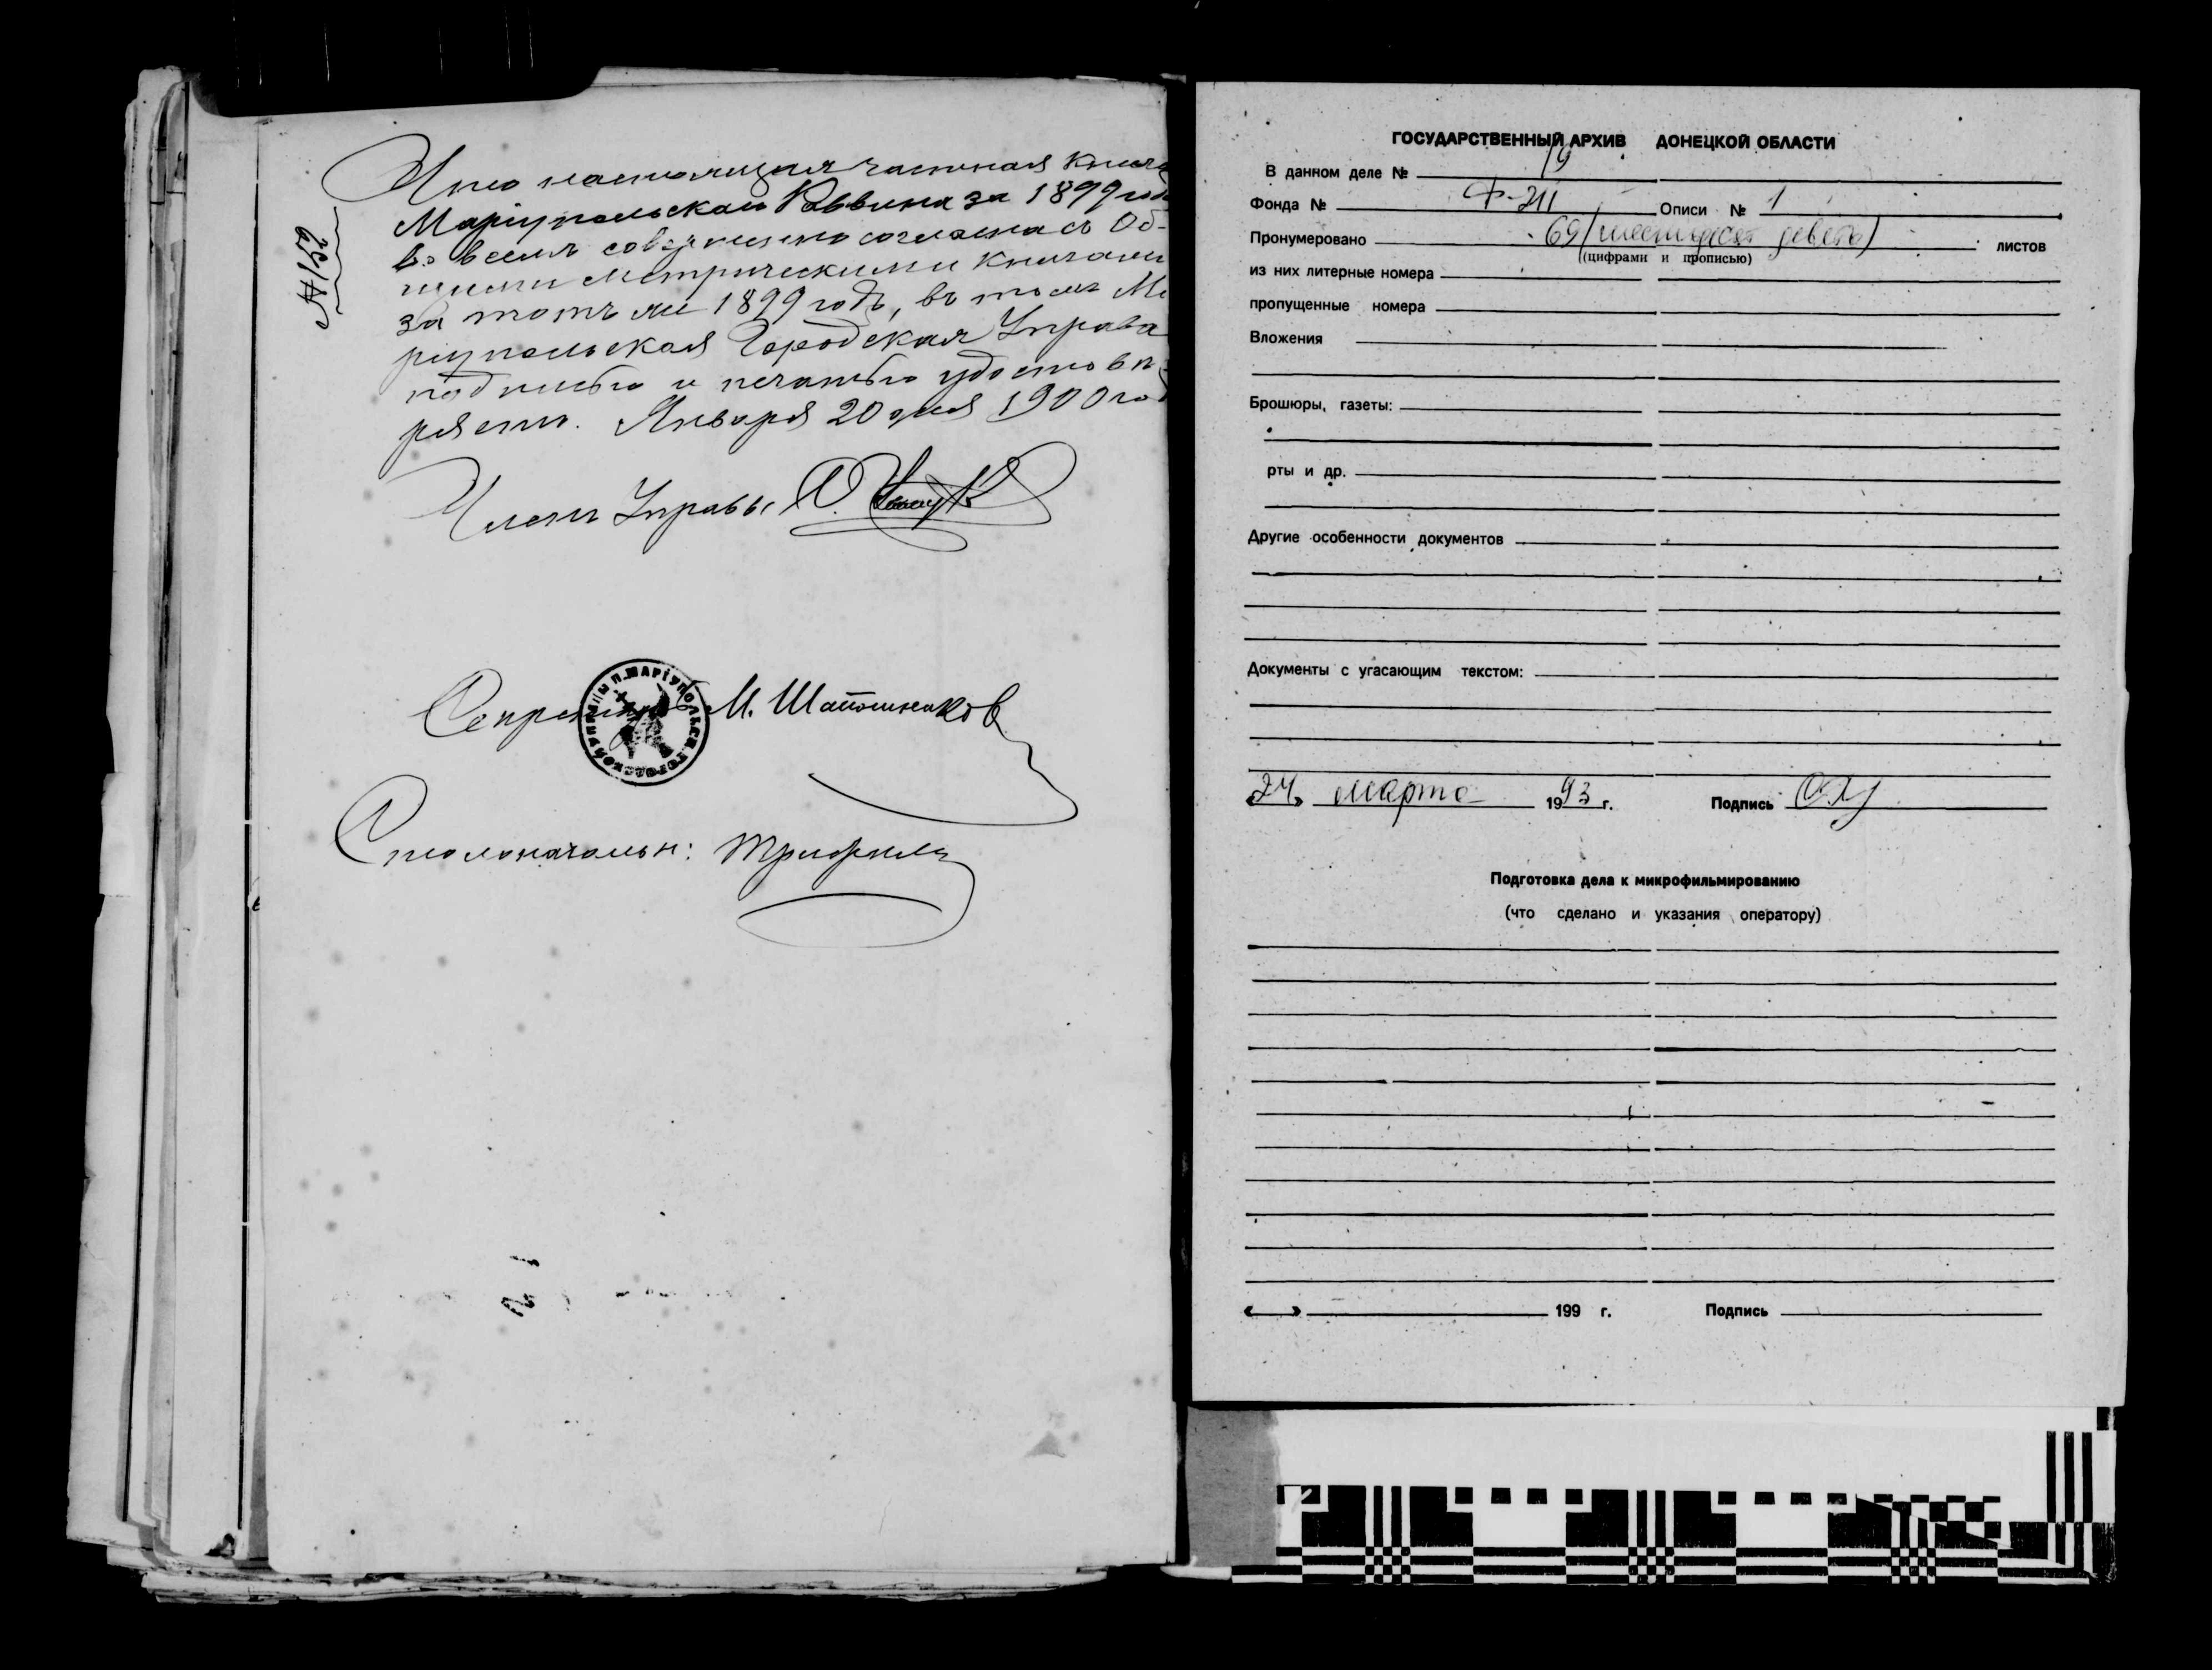 № 152
Что настоящая частная книга
Маріупольскаго Раввина за 1899 год
во всемъ совершенно согласна съ Об-
щими Метрическими книгами
за тотъ же 1899 годъ, въ томъ Ма
ріупольская Городская Управа
подписью и печатью удостовѣ-
ряетъ. Января 20 дня 1900 го
Членъ Управы
Секретарь М. Шапошников
МАРІУПОЛЬСК. ГОРОДСКОЙ УПРАВЫ
Столоначальн:
ГОСУДАРСТВЕННЫЙ АРХИВ ДОНЕЦКОЙ ОБЛАСТИ
В данном деле № 19
Фонда № Ф-211 Описи № 1
Пронумеровано 69 (шестьдесят девять) листов
(цифрами и прописью)
из них литерные номера
пропущенные номера
Вложения
Брошюры, газеты:
рты и др.
Другие особенности документов
Документы с угасающим текстом:
«24» марта 1993 г. Подпись
Подготовка дела к микрофильмированию
(что сделано и указания оператору)
« » 199 г. Подпись